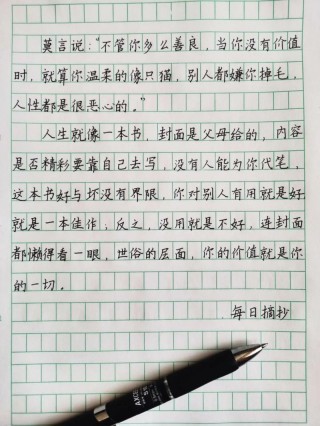 莫言说：“不管你多么善良，当你没有价值
时，就算你温柔的像只猫，别人都嫌你掉毛，
人性都是很恶心的。”
人生就像一本书，封面是父母给的，内容
是否精彩要靠自己去写，没有人能为你代笔，
这本书好与坏没有界限，你对别人有用就是好，
就是一本佳作；反之，没用就是不好，连封面
都懒得看一眼，世俗的层面，你的价值就是你
的一切。
每日摘抄